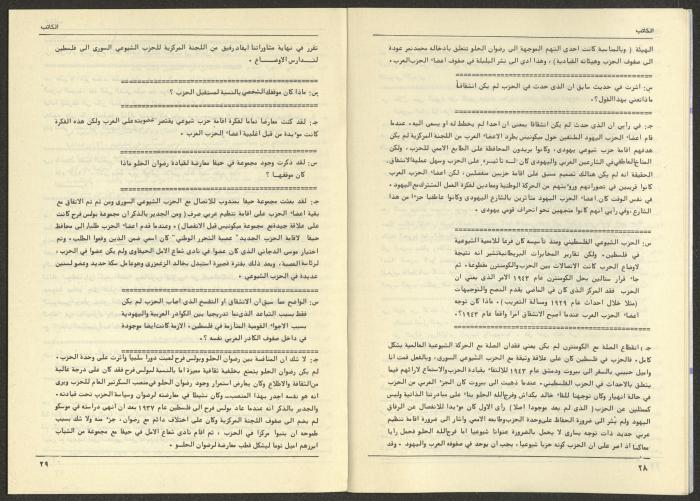 الكاتب
الهيئة ( وبالمناسبة كانت احدى التهم الموجهة الى رضوان الحلو تتعلق بادخاله محمد نمر عودة
الى صفوف الحزب وهيئاته القيادية ) ، وهذا ادى الى نشر البلبلة في صفوف اعضاء الحزب العرب .
س: اشرت في حديث سابق ان الذي حدث في الحزب لم يكن انشقاقاً
ماذا تعني بهذا القول؟ .
جـ: في رأيي ان الذي حدث لم يكن انشقاقا بمعنى ان احدا لم يخطط له او يسعى اليه . عندما
قام اعضاء الحزب اليهود الملتفين حول ميكونيس بطرد الاعضاء العرب من اللجنة المركزية لم يكن
هدفهم اقامة حزب شيوعي يهودي ، وكانوا يريدون المحافظة على الطابع الاممي للحزب ، ولكن
المناخ العاطفي في الشارعين العربي واليهودي كان له تأثيره على الحزب وسهل عملية الانشقاق .
الحقيقة انه لم يكن هنالك تصميم مسبق على اقامة حزبين منفصلين . لكن اعضاء الحزب العرب
كانوا قريبين في تصوراتهم ورؤيتهم من الحركة الوطنية ومعادين لفكرة العمل المشترك مع اليهود .
في نفس الوقت كان اعضاء الحزب اليهود متأثرين بالشارع اليهودي وكانوا عاطفيا جزءا من هذا
الشارع ، وفي رأيي انهم كانوا متجهين نحو انحراف قومي يهودي .
س: الحزب الشيوعي الفلسطيني ومنذ تأسيسه كان فرعا للاممية الشيوعية
في فلسطين . ولكن تقارير المخابرات البريطانية تشير انه نتيجة
لاوضاع الحرب كانت الاتصالات بين الحزب والكومنترن مقطوعة ، ثم
جاء قرار ستالين بحل الكومنترن عام ١٩٤٣ الامر الذي يعني ان
الحزب فقد المركز الذي كان في الماضي يقدم النصح والتوجيهات
(مثلا خلال احداث عام ١٩٢٩ ومسألة التعريب) . ماذا كان توجه
أعضاء الحزب العرب عندما اصبح الانشقاق امرا واقعا عام ١٩٤٣؟ .
جـ: انقطاع الصلة مع الكومنترن لم يكن يعني فقدان الصلة مع الحركة الشيوعية العالمية بشكل
كامل . فالحزب في فلسطين كان على علاقة وثيقة مع الحزب الشيوعي السوري ، وبالفعل قمت انا
واميل حبيبي بالسفر الى بيروت ودمشق عام ١٩٤٣ للالتقاء بقيادة الحزب والاستماع لارائهم فيما
يتعلق بالاحداث في الحزب الفلسطيني . عندما ذهبت الى بيروت كان الجزء العربي من الحزب
في حالة انهيار وكان توجهنا للقاء خالد بكداش وفرج الله الحلو بناء على مبادرتنا الذاتية وليس
كممثلين عن الحزب ( الذي لم يعد بوجوده) اصلا) رأي الاول كان مؤيدا للانفصال عن الرفاق
اليهود ولم يشر الى ضرورة الحفاظ على وحدة الحزب وطابعه الاممي واشار الى ضرورة اقامة تنظيم
عربي جديد ذات توجه يساري لا يحمل بالضرورة عنوانا شيوعيا اما فرج الله الحلو فحمل رأيا
معاكسا اذ اصر على ان الحزب كونه حزبا شيوعيا ، يجب ان يوحد في صفوفه العرب واليهود . وقد
٢٨
الكاتب
تقرر في نهاية مشاوراتنا ايفاد رفيق من اللجنة المركزية للحزب الشيوعي السوري الى فلسطين
لتدارس الاوضاع .
س: ماذا كان موقفك الشخصي بالنسبة لمستقبل الحزب ؟
جـ: لقد كنت معارضا تماما لفكرة اقامة حزب شيوعي يقتصر عضويته على العرب ولكن هذه الفكرة
كانت مؤيدة من قبل اغلبية اعضاء الحزب العرب .
س: لقد ذكرت وجود مجموعة في حيفا معارضة لقيادة رضوان الحلو ماذا
كان موقفها ؟
جـ: لقد بعثت مجموعة حيفا بمندوب للاتصال مع الحزب الشيوعي السوري ومن ثم تم الاتفاق مع
بقية اعضاء الحزب على اقامة تنظيم عربي صرف ( ومن الجدير بالذكر ان مجموعة بولس فرح كانت
على علاقة جيدة مع مجموعة ميكونيس قبل الانفصال) . وعندما قدم اعضاء الحزب طلبا الى محافظ
حيفا لاقامة الحزب الجديد "عصبة التحرر الوطني" كان اسمي ضمن الذين وقعوا الطلب ، وتم
اختيار موسى الدجاني الذي كان عضوا في نادي شعاع الامل الحيفاوي ولم يكن عضوا في الحزب ،
لرئاسة العصبة ، وبعد ذلك بفترة قصيرة استبدل بخالد الزعمري وهو عامل سكة حديد وعضو لسنين
عديدة في الحزب الشيوعي .
س: الواضح مما سبق ان الانشقاق او التفسخ الذي اصاب الحزب لم يكن
فقط بسبب التباعد الذي نما تدريجيا بين الكوادر العربية واليهودية
بسبب الاجواء القومية المتأزمة في فلسطين . الازمة كانت ايضا موجودة
في داخل صفوف الكادر العربي نفسه ؟ .
جـ: لا شك ان المنافسة بين رضوان الحلو وبولس فرح لعبت دورا سلبيا واثرت على وحدة الحزب .
لم يكن رضوان الحلو يتمتع بخلفية ثقافية مميزة اما بالنسبة لبولس فرح فقد كان على درجة عالية
من الثقافة والاطلاع وكان يعارض استمرار وجود رضوان الحلو في منصب السكرتير العام للحزب ويرى
انه هو نفسه اجدر بهذا المنصب . وكان نشيطا في معارضته لرضوان وسياسة الحزب تحت قيادته .
والجدير بالذكر انه عندما عاد بولس فرح الى فلسطين عام ١٩٣٧ بعد ان انهى دراسته في موسكو
لم يضم الى صفوف اللجنة المركزية وكان على اختلاف دائم مع رضوان ، جزء منه ولا شك بسبب
طموحه ان يتبوأ مركزا في الحزب . ثم اقام نادي شعاع الامل في حيفا مع مجموعة من الشباب
ابرزهم اميل توما ليشكل قطب معارضة لرضوان الحلو .
٢٩